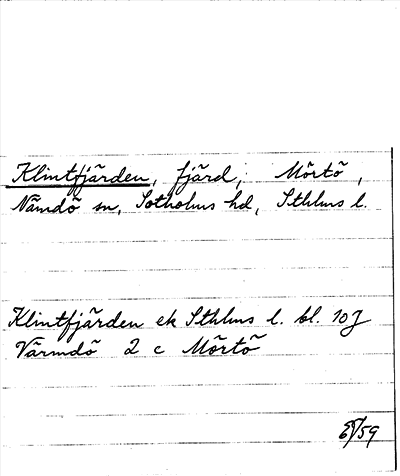 Klintfjärden, fjärd, Mörtö,
Nämdö sn, Sotholms hd, Sthlms l.
Klintfjärden ek Sthlms l. bl. 10J
Värmdö 2 c Mörtö
/59